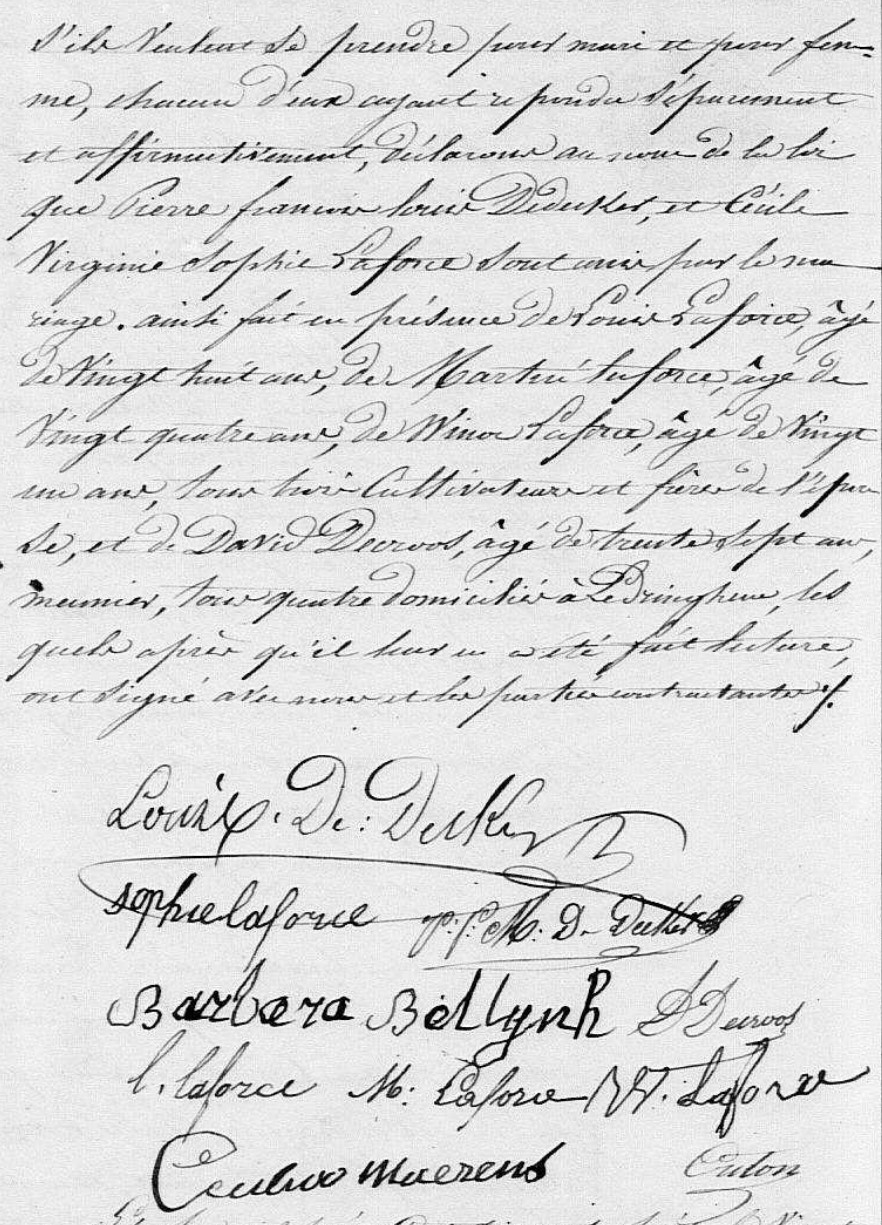 s'ils veulent se prendre pour mari et pour fem-
me, chacun d'eux ayant repondu séparement
et affirmativement, déclarons au nom de la loi
que Pierre francois louis Dedecker, et Cécile
Virginie Sophie Laforce sont unis par le ma
riage. ainsi fait en présence de Louis Laforce, âgé
de vingt huit ans, de Martin laforce, âgé de
vingt quatre ans, de Winoc Laforce, âgé de vingt
un ans, tous trois Cultivateurs et frères de l'épou
se, et de David Decroos, âgé de trente sept ans,
meunier, tous quatre domiciliés à Ledringhem, les
quels après qu'il leur en a été fait lecture,
ont signé avec nous et les parties contractantes ./.
Louis. De: Decker
sophie laforce p: f: M: De Decker
Barbara Bellynk D Decroos
l. laforce M: Laforce W. Laforce
maerens